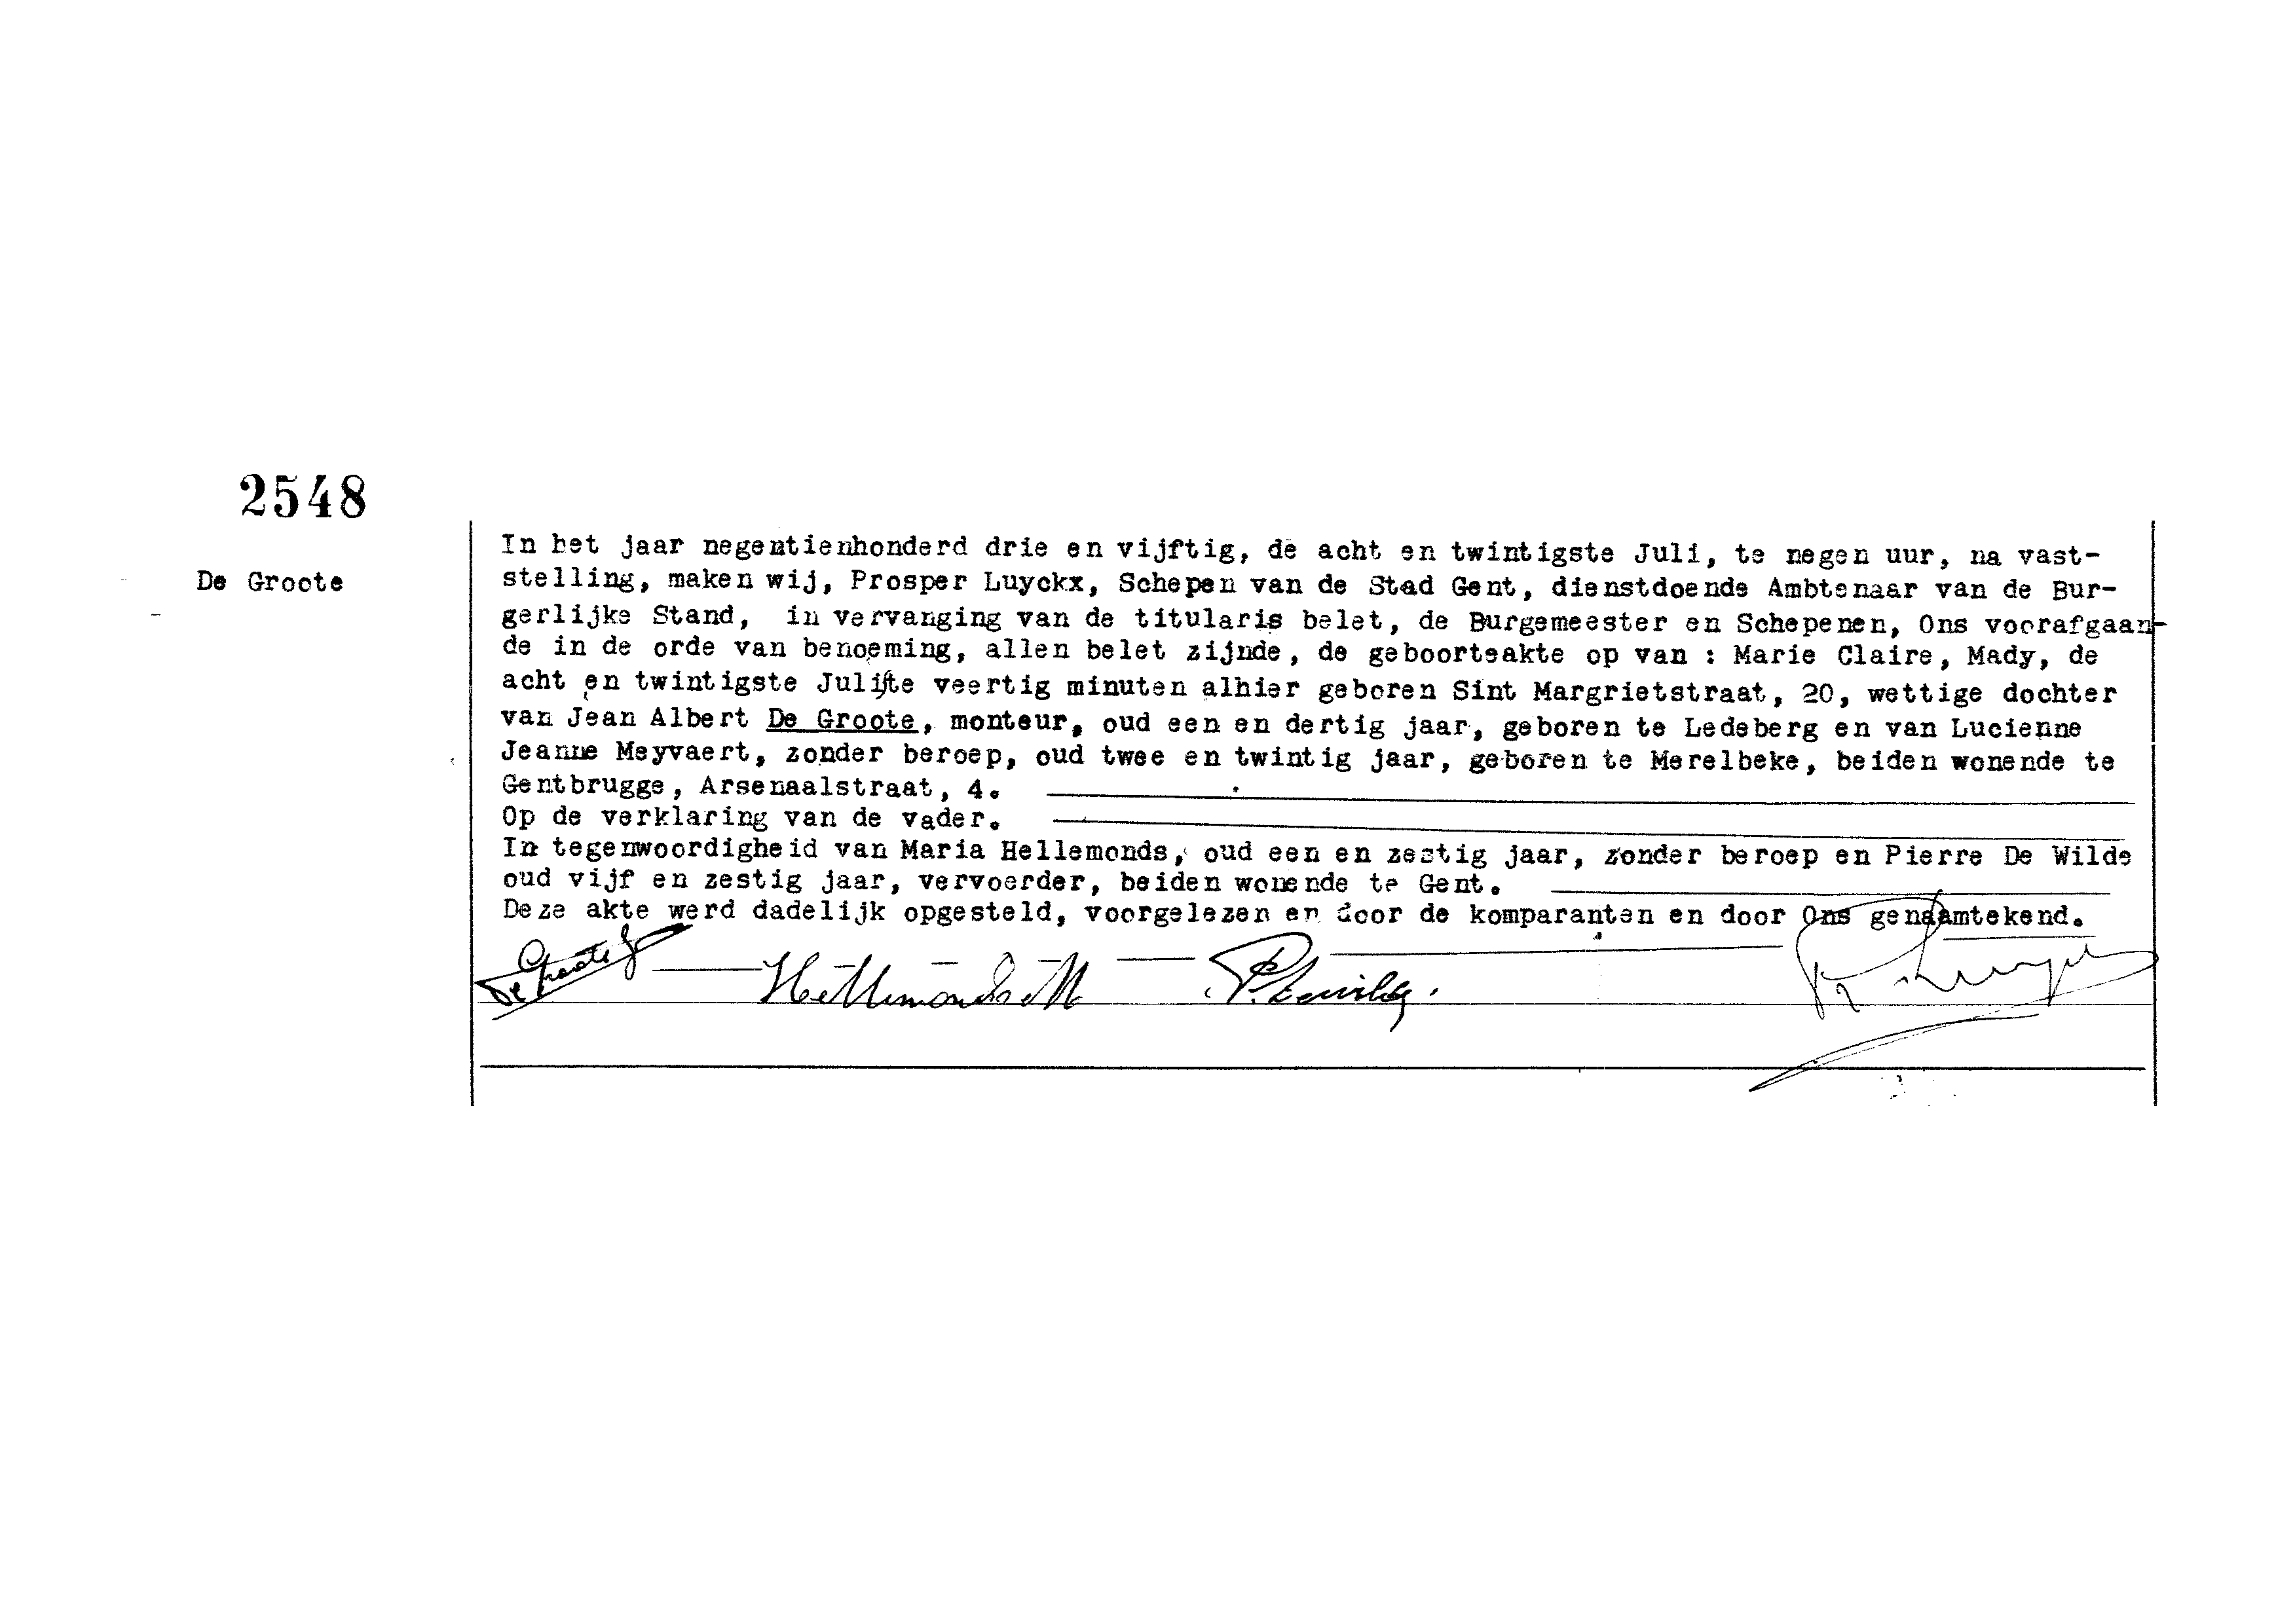 2548
De Groote
In het jaar negentienhonderd drie en vijftig, de acht en twintigste Juli, te negen uur, na vast-
stelling, maken wij, Prosper Luyckx, Schepen van de Stad Gent, dienstdoende Ambtenaar van de Bur-
gerlijke Stand, in vervanging van de titularis belet, de Burgemeester en Schepenen, Ons voorafgaan-
de in de orde van benoeming, allen belet zijnde, de geboorteakte op van : Marie Claire, Mady, de
acht en twintigste Juli te veertig minuten alhier geboren Sint Margrietstraat, 20, wettige dochter
van Jean Albert De Groote, monteur, oud een en dertig jaar, geboren te Ledeberg en van Lucienne
Jeanne Meyvaert, zonder beroep, oud twee en twintig jaar, geboren te Merelbeke, beiden wonende te
Gentbrugge, Arsenaalstraat, 4.
Op de verklaring van de vader.
In tegenwoordigheid van Maria Hellemonds, oud een en zestig jaar, zonder beroep en Pierre De Wilde
oud vijf en zestig jaar, vervoerder, beiden wonende te Gent.
Deze akte werd dadelijk opgesteld, voorgelezen en door de komparanten en door Ons genaamtekend.
De Groote J Hellemonds M P. Dewilde.